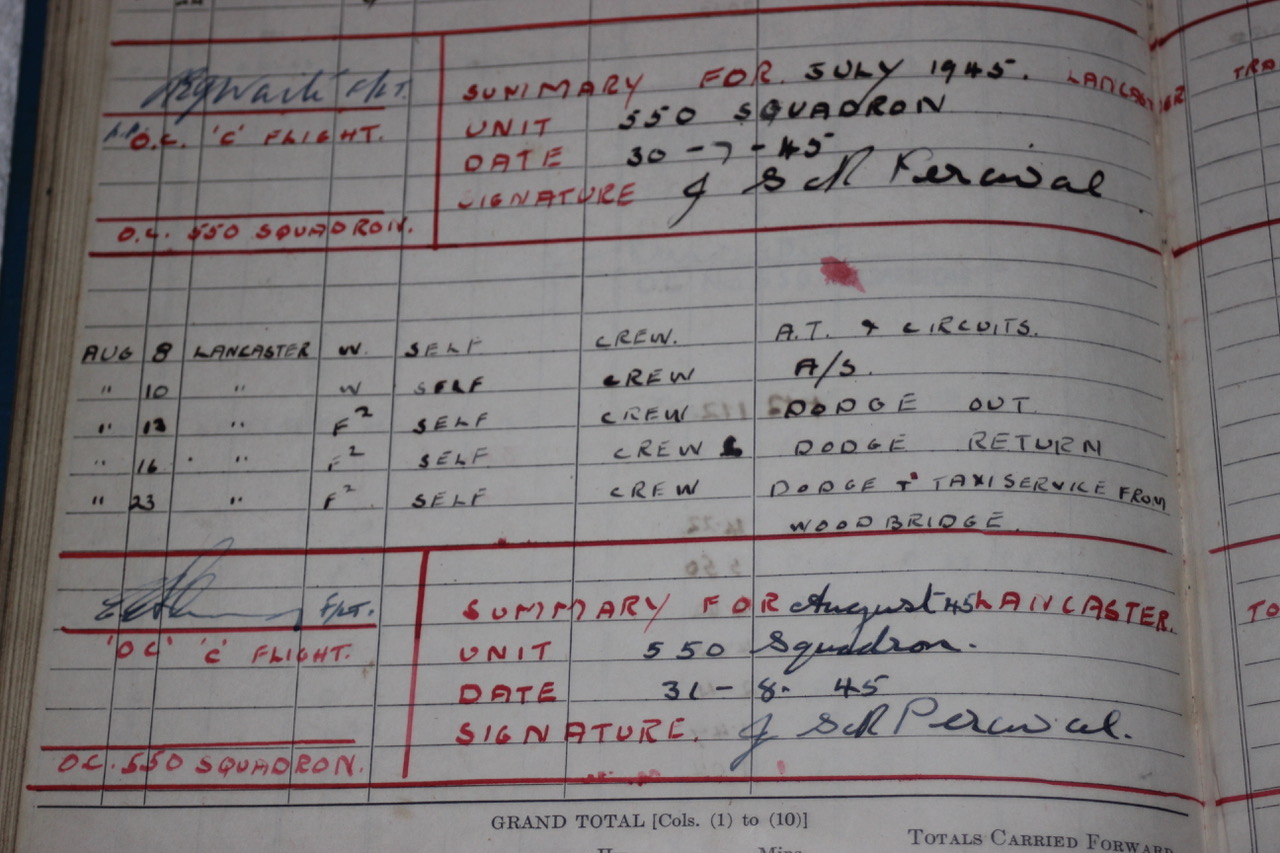 F/LT. SUMMARY FOR JULY 1945. LANCASTER
A/ O.C. 'C' FLIGHT. UNIT 550 SQUADRON
DATE 30-7-45
SIGNATURE J S R Percival.
O.C. 550 SQUADRON.
AUG 8 LANCASTER W. SELF CREW. A.T. & CIRCUITS.
" 10 " W SELF CREW A/S.
" 13 " F2 SELF CREW DODGE OUT
" 16 " F2 SELF CREW DODGE RETURN
" 23 " F2 SELF CREW DODGE & TAXI SERVICE FROM
WOODBRIDGE.
F/LT. SUMMARY FOR August 45 LANCASTER.
'OC' 'C' FLIGHT. UNIT 550 Squadron.
DATE 31-8-45
SIGNATURE. J S R Percival.
OC. 550 SQUADRON.
GRAND TOTAL [Cols. (1) to (10)]
TOTALS CARRIED FORWARD
TRA
TO